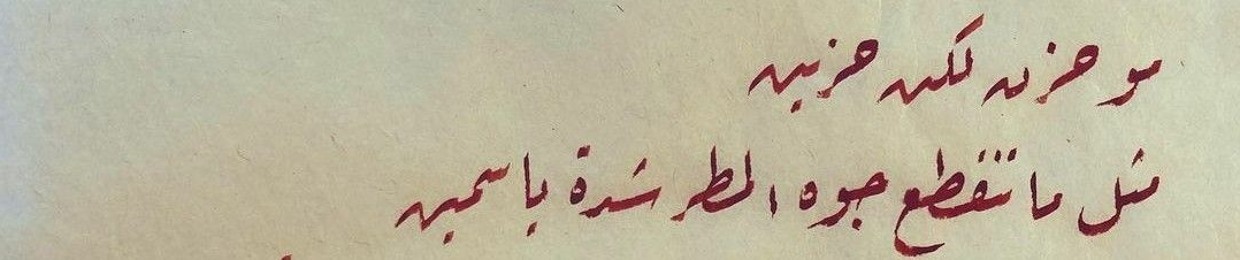 مو حزن لكن حزين
مثل ما تنقطع جوه المطر شدة ياسمين